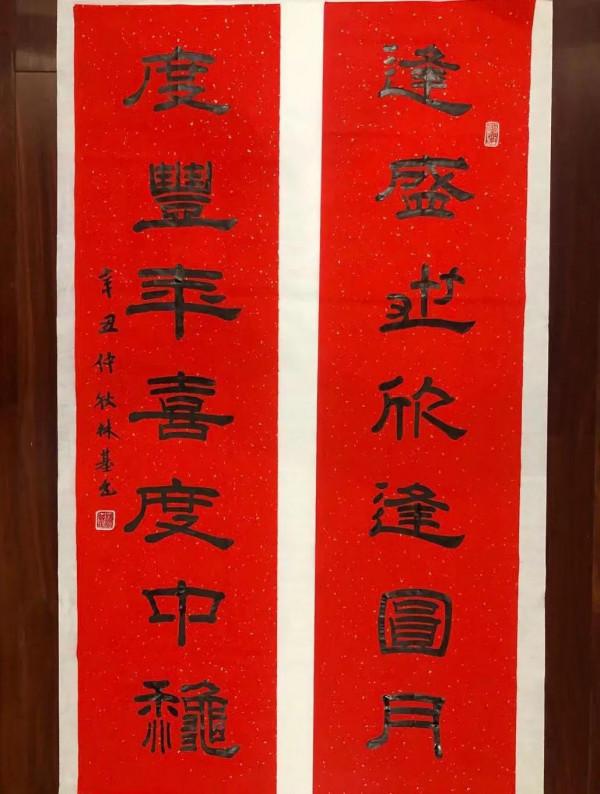 逢盛世欣逢圓月
度豐年喜度中龝
辛丑仲秋林基